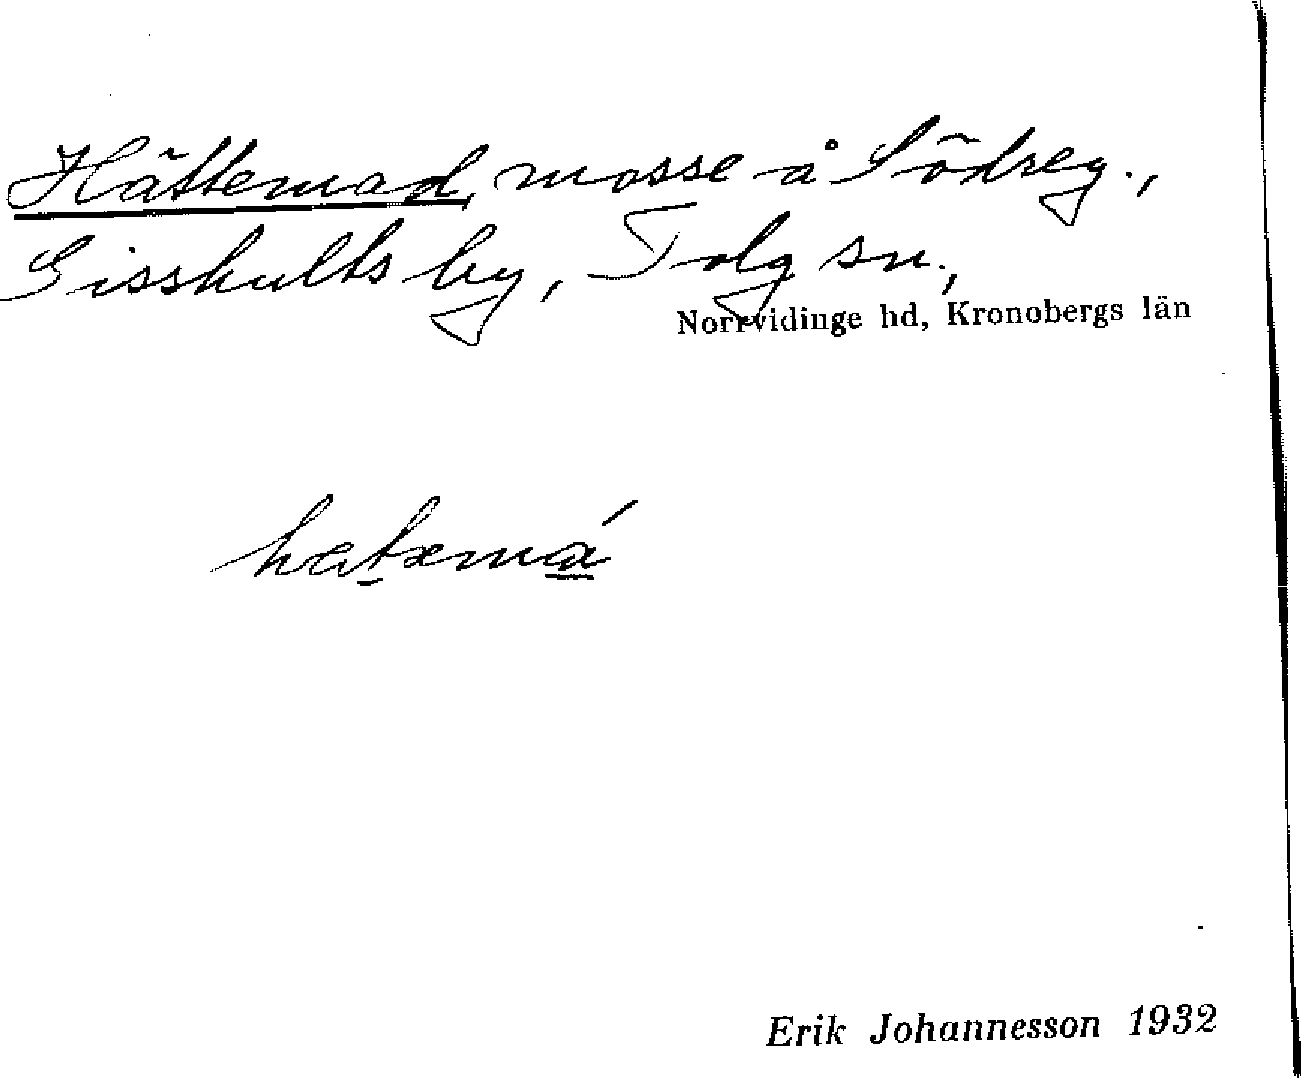 Hättemad, mosse å Södreg.,
Gisskults by, Tolg sn.,
Norrvidinge hd, Kronobergs län
hætæmá
Erik Johannesson 1932